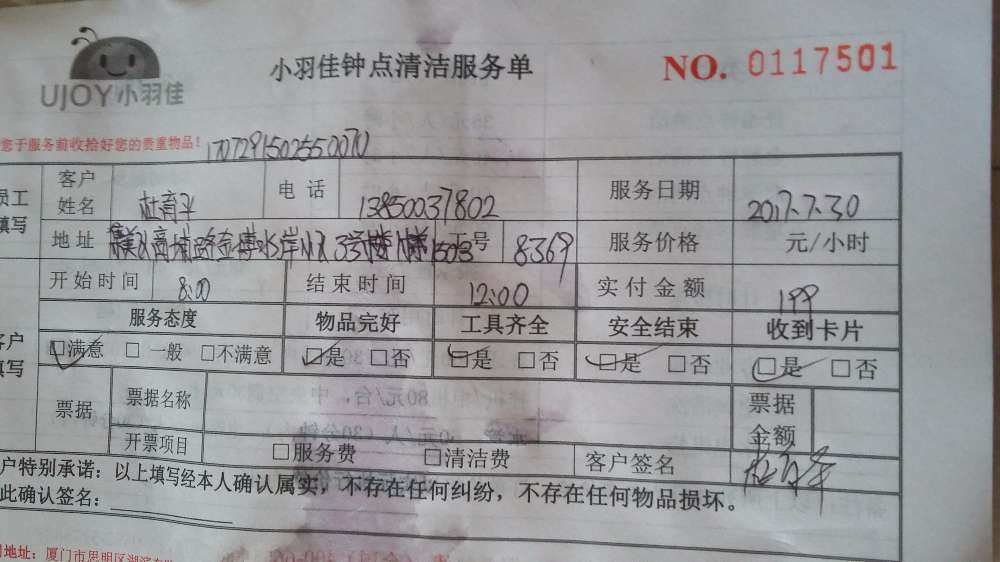 UJOY小羽佳
小羽佳钟点清洁服务单
NO. 0117501
您于服务前收拾好您的贵重物品!
1707291502550070
员工填写
客户姓名 杜育平 电话 13850037802 服务日期 2017.7.30
地址 3号楼 1503 工号 8369 服务价格 元/小时
开始时间 8:00 结束时间 12:00 实付金额 199
客户填写
服务态度 物品完好 工具齐全 安全结束 收到卡片
☑满意 □一般 □不满意 ☑是 □否 ☑是 □否 ☑是 □否 ☑是 □否
票据 票据名称 票据金额
开票项目 □服务费 □清洁费 客户签名 杜育平
户特别承诺:以上填写经本人确认属实,不存在任何纠纷,不存在任何物品损坏。
此确认签名:
地址:厦门市思明区湖滨